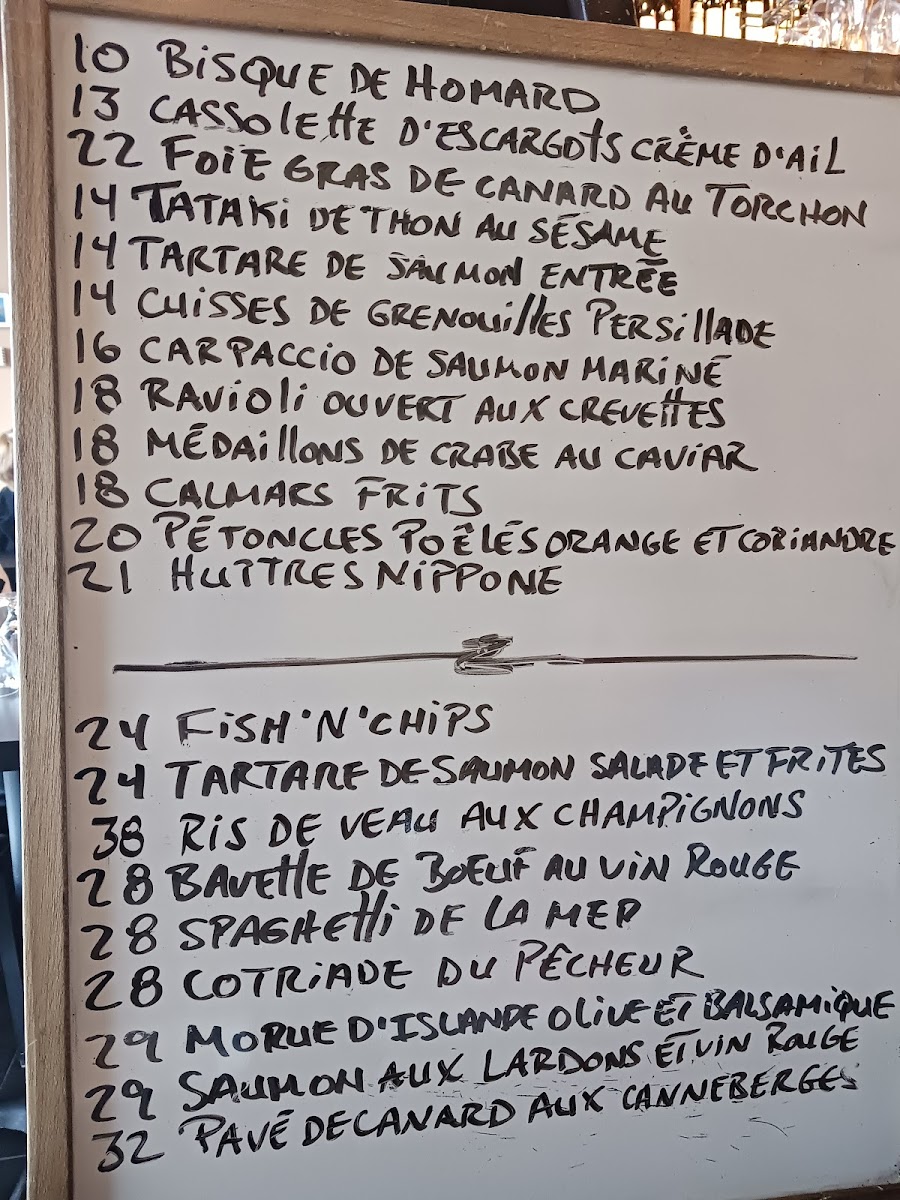 10 BISQUE DE HOMARD
13 CASSOLETTE D'ESCARGOTS CRÈME D'AIL
22 FOIE GRAS DE CANARD AU TORCHON
14 TATAKI DE THON AU SÉSAME
14 TARTARE DE SAUMON ENTRÉE
14 CUISSES DE GRENOUILLES PERSILLADE
16 CARPACCIO DE SAUMON MARINÉ
18 RAVIOLI OUVERT AUX CREVETTES
18 MÉDAILLONS DE CRABE AU CAVIAR
18 CALMARS FRITS
20 PÉTONCLES POÊLÉS ORANGE ET CORIANDRE
21 HUITRES NIPPONE
24 FISH'N'CHIPS
24 TARTARE DE SAUMON SALADE ET FRITES
38 RIS DE VEAU AUX CHAMPIGNONS
28 BAVETTE DE BOEUF AU VIN ROUGE
28 SPAGHETTI DE LA MER
28 COTRIADE DU PÊCHEUR
29 MORUE D'ISLANDE OLIVE ET BALSAMIQUE
29 SAUMON AUX LARDONS ET VIN ROUGE
32 PAVÉ DE CANARD AUX CANNEBERGES